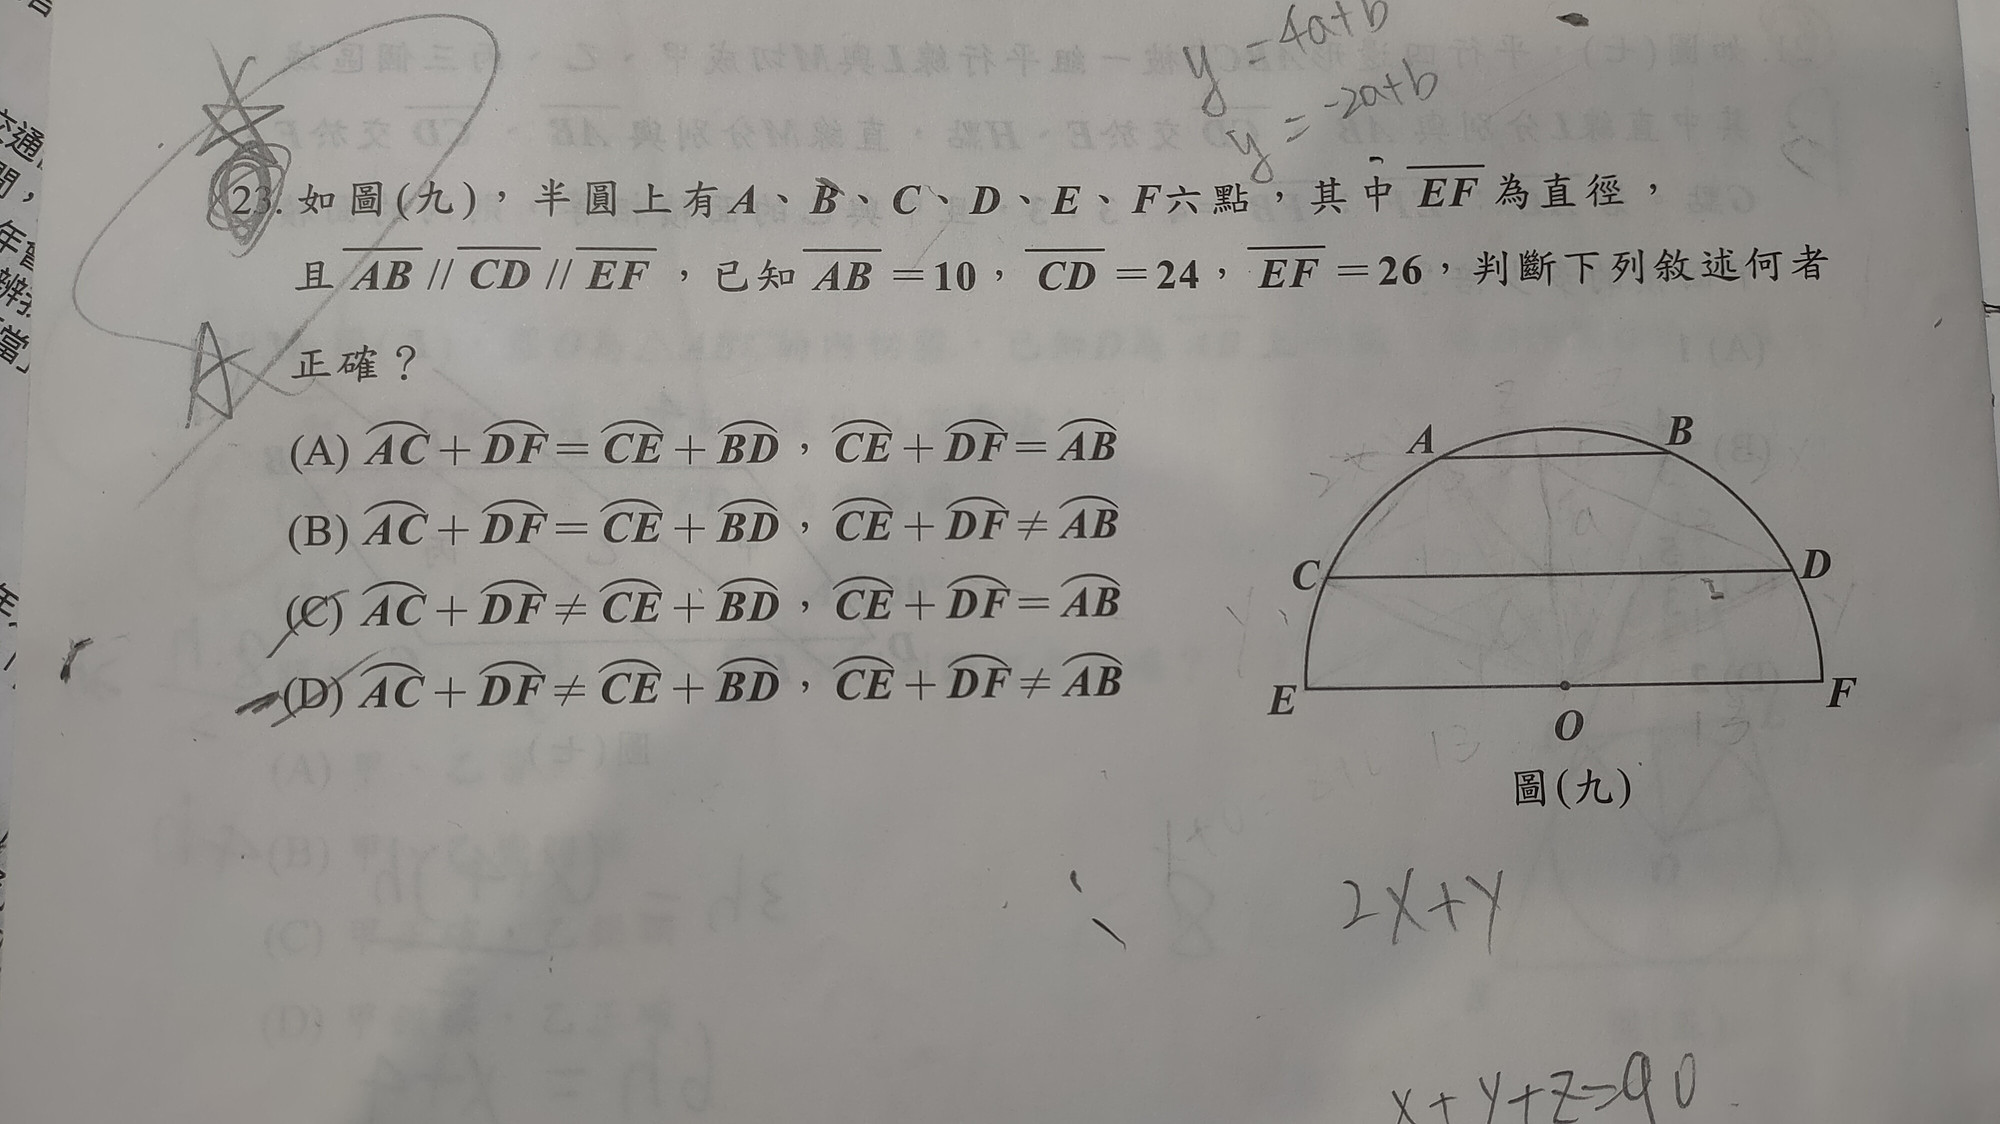 y = 4a+b
y = -2a+b
23. 如圖(九)，半圓上有A、B、C、D、E、F六點，其中 EF 為直徑，
且 AB // CD // EF ，已知 AB =10， CD =24， EF =26，判斷下列敘述何者
正確？
A
(A) AC + DF = CE + BD ， CE + DF = AB
(B) AC + DF = CE + BD ， CE + DF ≠ AB
(C) AC + DF ≠ CE + BD ， CE + DF = AB
(D) AC + DF ≠ CE + BD ， CE + DF ≠ AB
A B
C D
E O F
圖(九)
2x+y
x+y+z=90